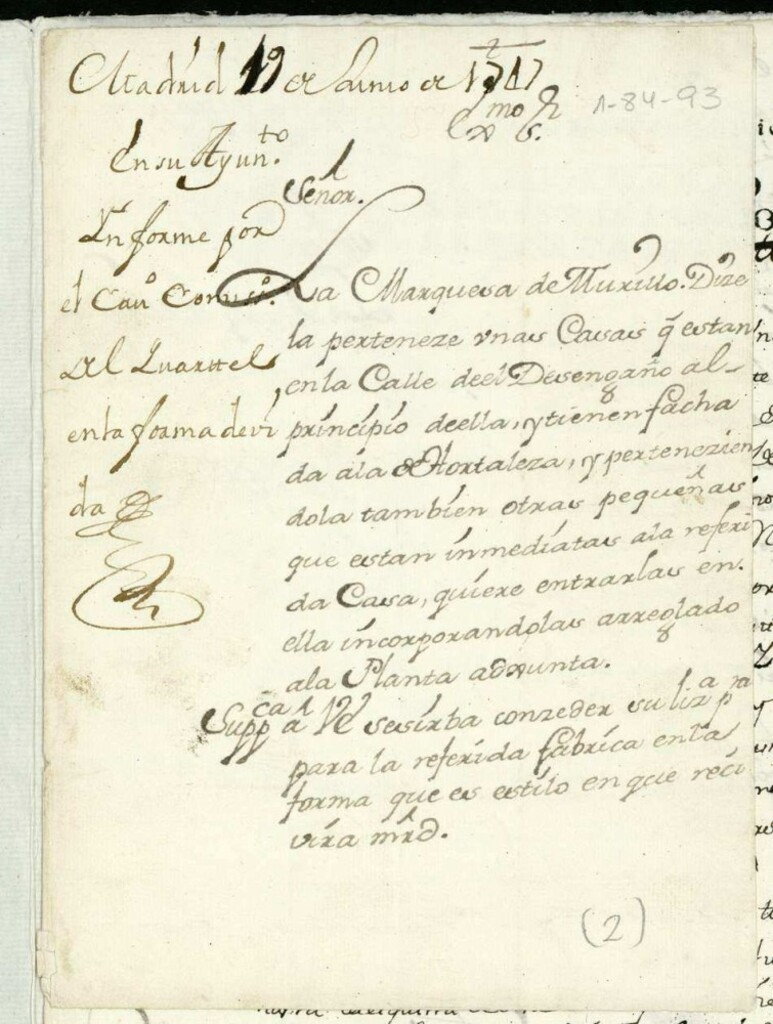 Madrid 19 de Junio de 1717
1-84-93
Exmo Sr
En su Ayunto.
Señor.
Informe por
el Cavo Comisso.
del Quarttel
en la forma devi
da
La Marquesa de Murillo. Dize
la perteneze vnas Casas q̃ estan
en la Calle deel Desengaño al
prinçipio deella, y tienen facha
da a la de Hortaleza, y pertenezien
dola tambien otras pequeñas
que estan inmediatas a la referi
da Casa, quiere entrarlas en
ella incorporandolas arreglado
a la Planta adxunta.
Suppca a VE se sirba conzeder su liza pra
para la referida fabrica en la
forma que es estilo en que reci
vira mrd.
(2)